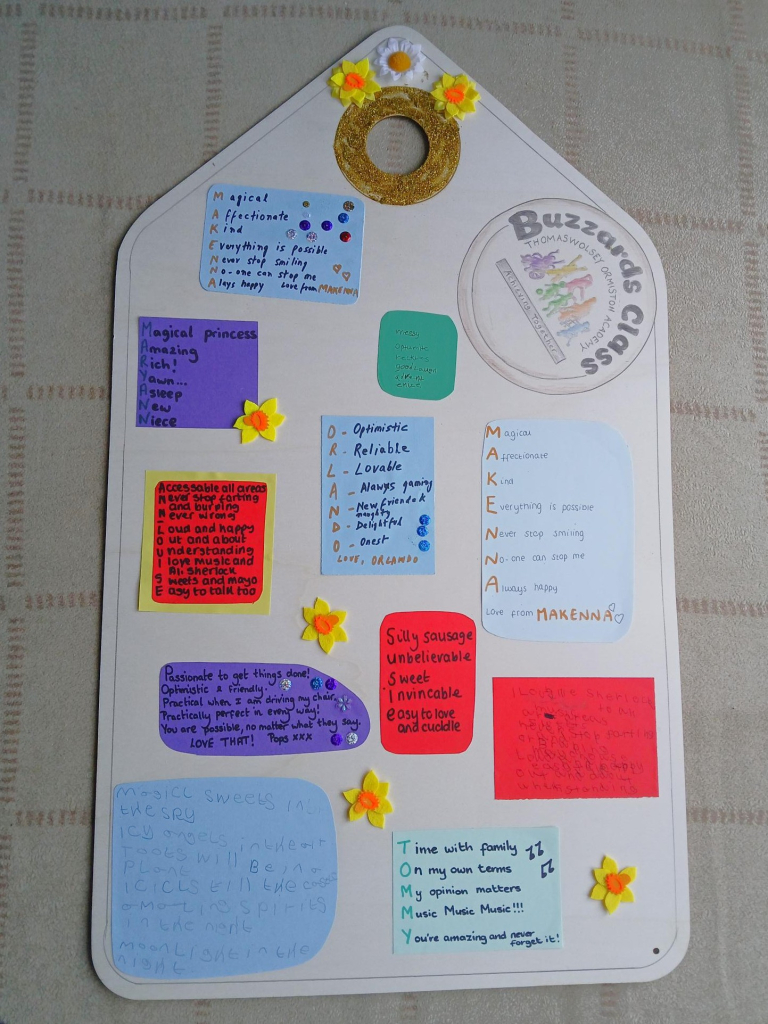 Magical
Affectionate
Kind
Everything is possible
Never stop smiling
No-one can stop me
Alays happy Love from MAKENNA
Buzzards Class
THOMAS WOLSEY ORMISTON ACADEMY
Achieving Together
Magical princess
Amazing
Rich!
Yawn...
Asleep
New
Niece
Optimistic
O - Optimistic
R - Reliable
L - Lovable
A - Always gaming
N - New friend
naughty
D - Delightful
O - Onest
LOVE, ORLANDO
Magical
Affectionate
Kind
Everything is possible
Never stop smiling
No-one can stop me
Always happy
Love from MAKENNA
Accessable all areas
Never stop farting
and burping
Never wrong
Loud and happy
Out and about
Understanding
I love music and
Ali. Sherlock
Sweets and mayo
Easy to talk too
Silly sausage
Unbelievable
Sweet
Invincable
easy to love
and cuddle
Passionate to get things done!
Optimistic & friendly.
Practical when I am driving my chair.
Practically perfect in every way!
You are possible, no matter what they say.
LOVE THAT! Pops xxx
Sherlock
MagicL sweets in
the sky
Icy angels in the air
Roots will Be in a
Plant
IcicLs till the
in the night
Moon Light in the
night.
Time with family
On my own terms
My opinion matters
Music Music Music!!!
You're amazing and never
forget it!